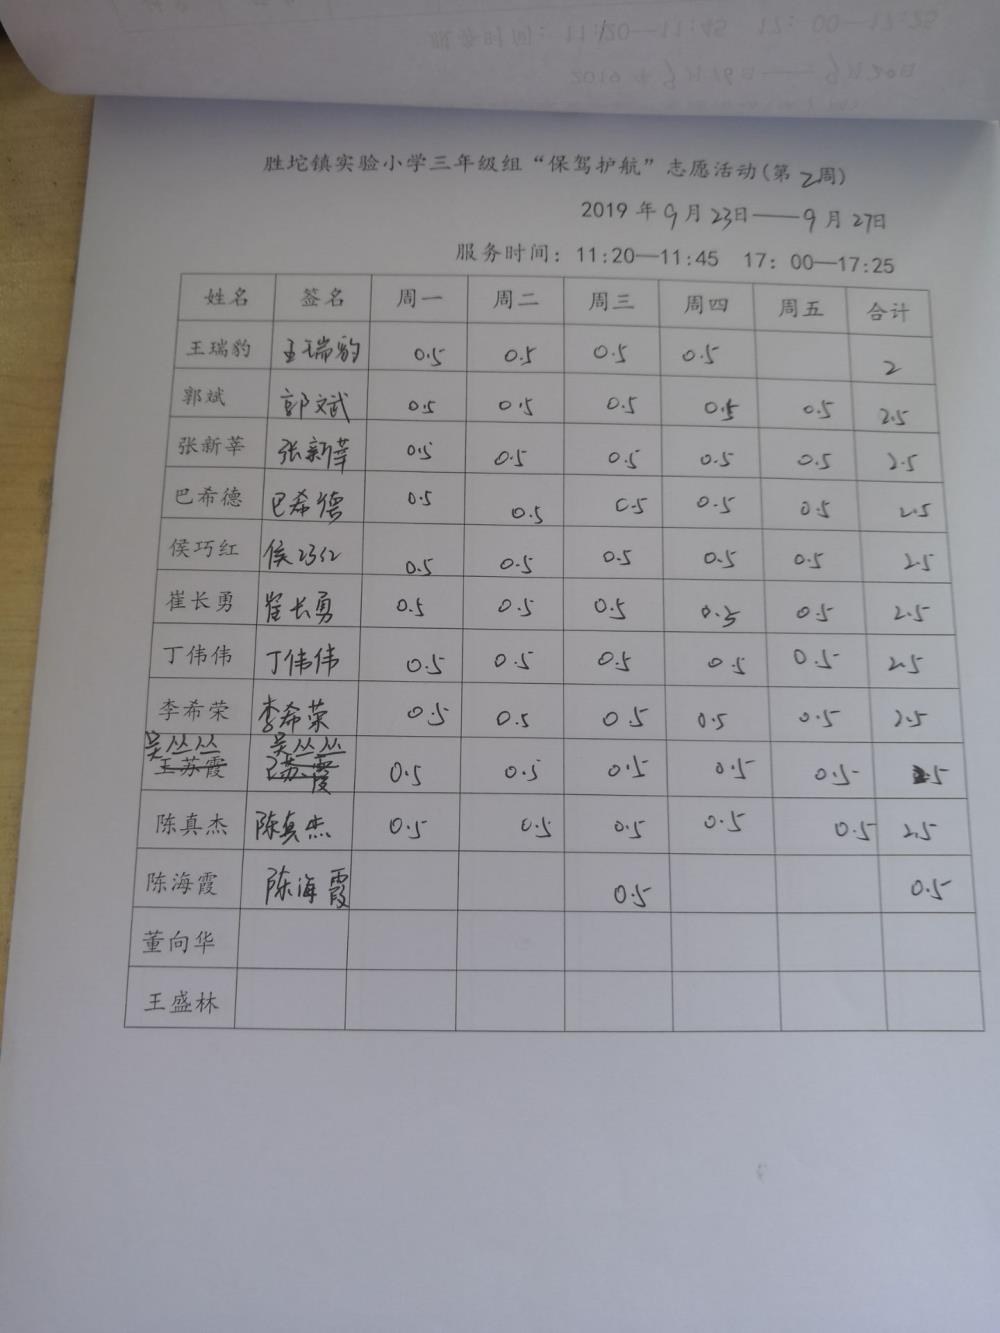 胜坨镇实验小学三年级组“保驾护航”志愿活动(第2周)
2019年9月23日——9月27日
服务时间：11:20—11:45 17：00—17:25
姓名 签名 周一 周二 周三 周四 周五 合计
王瑞豹 王瑞豹 0.5 0.5 0.5 0.5 2
郭斌 郭斌 0.5 0.5 0.5 0.5 0.5 2.5
张新莘 张新莘 0.5 0.5 0.5 0.5 0.5 2.5
巴希德 巴希德 0.5 0.5 0.5 0.5 0.5 2.5
侯巧红 侯巧红 0.5 0.5 0.5 0.5 0.5 2.5
崔长勇 崔长勇 0.5 0.5 0.5 0.5 0.5 2.5
丁伟伟 丁伟伟 0.5 0.5 0.5 0.5 0.5 2.5
李希荣 李希荣 0.5 0.5 0.5 0.5 0.5 2.5
吴丛丛 吴丛丛
王苏霞 王苏霞 0.5 0.5 0.5 0.5 0.5 2.5
陈真杰 陈真杰 0.5 0.5 0.5 0.5 0.5 2.5
陈海霞 陈海霞 0.5 0.5
董向华
王盛林